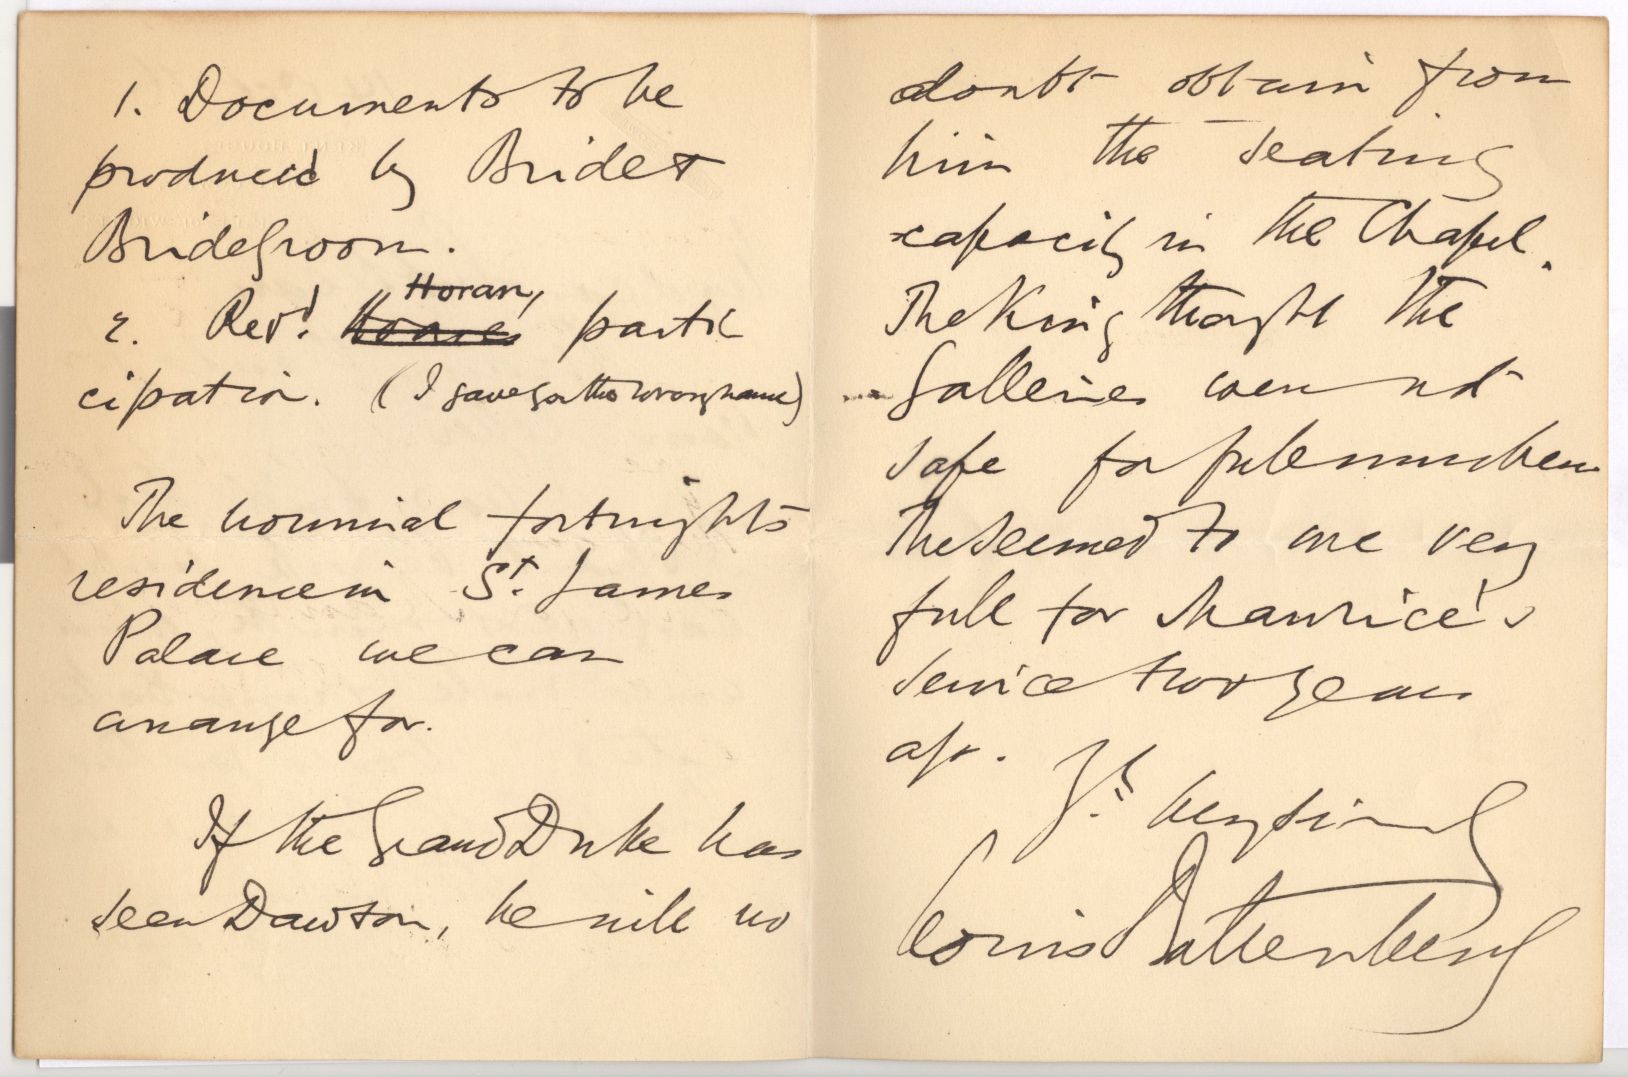 1. Documents to be
produced by Bride &
Bridegroom.
Horan,
2. Revd. Hoares parti
cipation. (I gave you the wrong name)
The nominal fortnights
residence in St. James
Palace we can
arrange for.
If the Grand Duke has
seen Dawson, he will no
doubt obtain from
him the seating
capacity in the Chapel.
The King thought the
Galleries were not
safe for full numbers
They seemed to me very
full for Maurice's
service two years
ago.
Yrs. very sincerely
Louis Battenberg